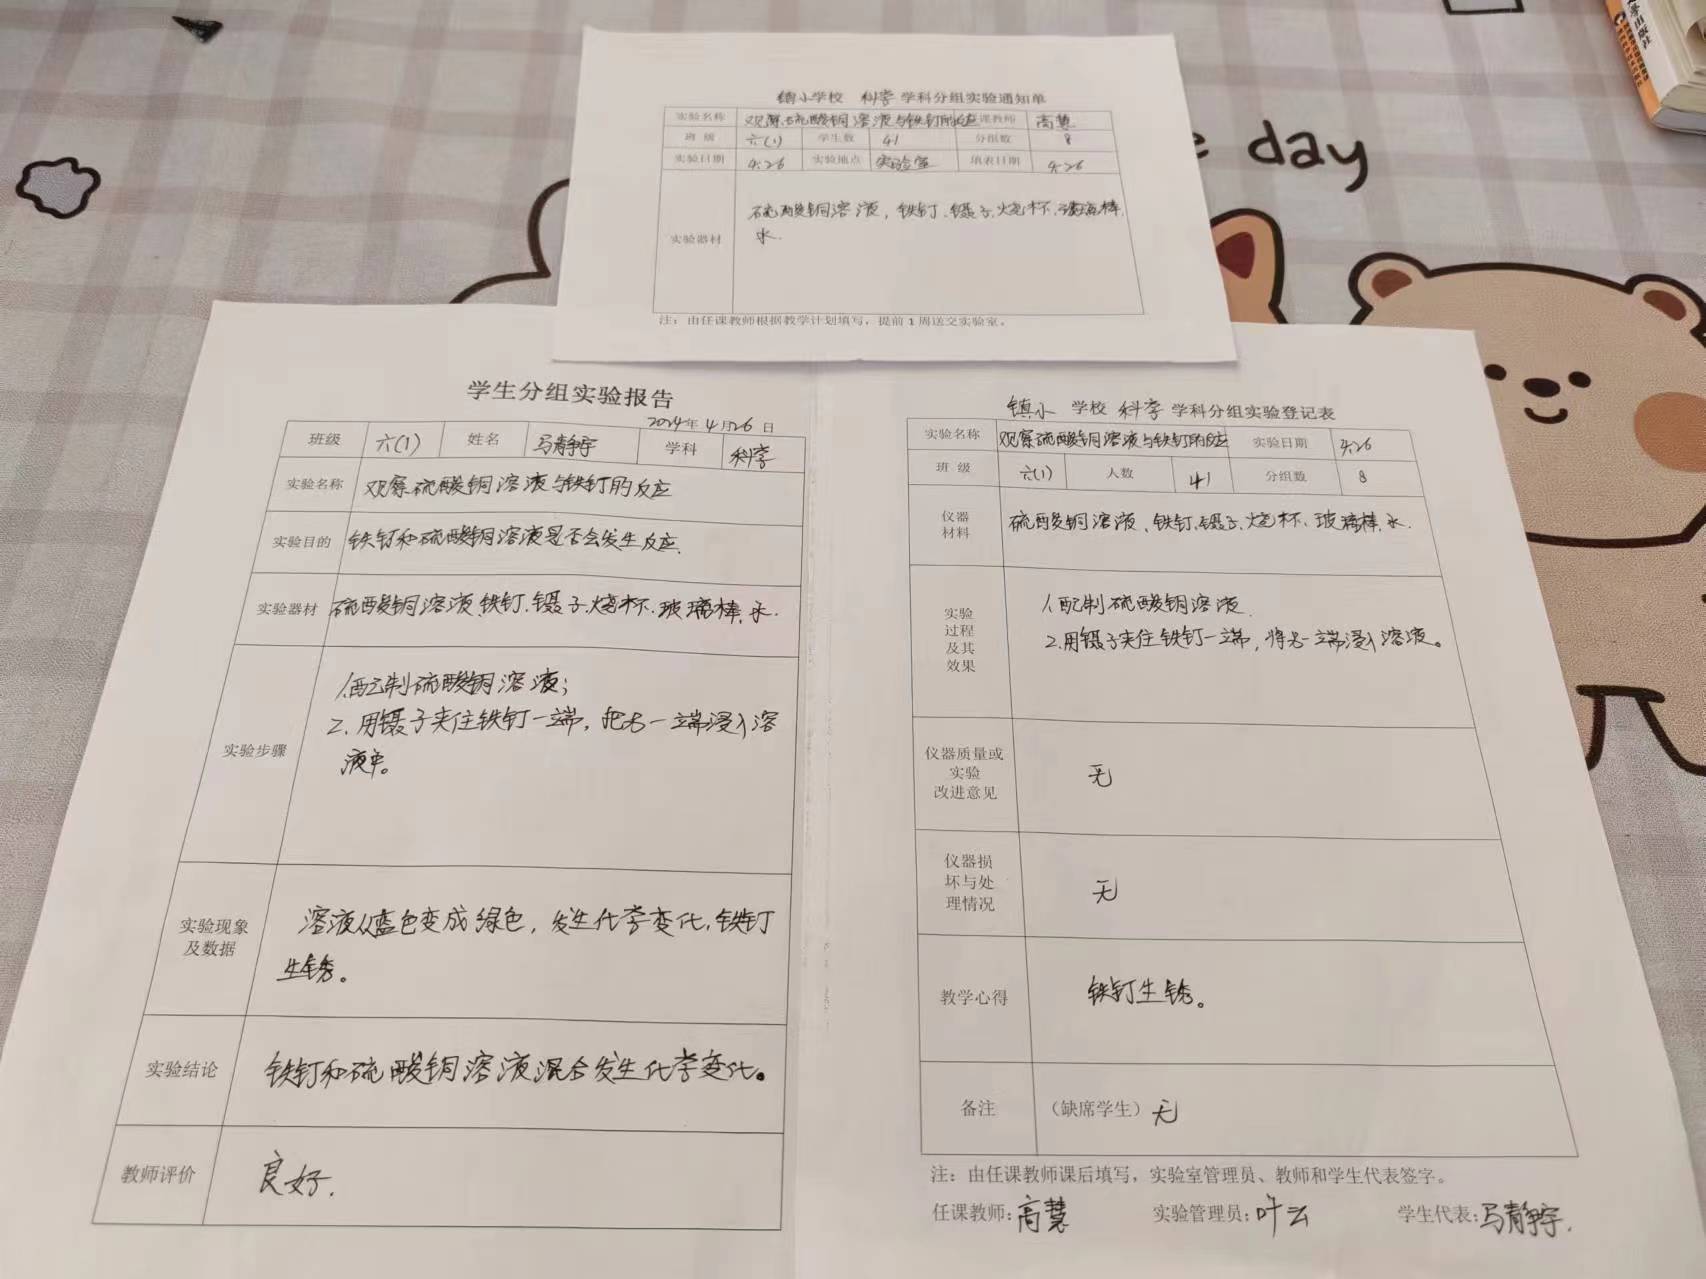 等出版社
e day
镇小学校 科学 学科分组实验通知单
实验名称 观察硫酸铜溶液与铁钉的反应 课教师 高慧
班 级 六(1) 学生数 41 分组数 8
实验日期 4.26 实验地点 实验室 填表日期 4.26
实验器材 硫酸铜溶液,铁钉、镊子、烧杯、玻璃棒、
水.
注:由任课教师根据教学计划填写,提前1周送交实验室。
学生分组实验报告
2024年 4月26日
班级 六(1) 姓名 马静宇 学科 科学
实验名称 观察硫酸铜溶液与铁钉的反应
实验目的 铁钉和硫酸铜溶液是否会发生反应.
实验器材 硫酸铜溶液、铁钉、镊子、烧杯、玻璃棒、水.
实验步骤 1.配制硫酸铜溶液;
2.用镊子夹住铁钉一端,把另一端浸入溶
液中。
实验现象
及数据 溶液从蓝色变成绿色,发生化学变化,铁钉
生锈。
实验结论 铁钉和硫酸铜溶液混合发生化学变化。
教师评价 良好.
镇小 学校 科学 学科分组实验登记表
实验名称 观察硫酸铜溶液与铁钉的反应 实验日期 4.26
班 级 六(1) 人数 41 分组数 8
仪器
材料 硫酸铜溶液、铁钉、镊子、烧杯、玻璃棒、水.
实验
过程
及其
效果 1.配制硫酸铜溶液.
2.用镊子夹住铁钉一端,将另一端浸入溶液。
仪器质量或
实验
改进意见 无
仪器损
坏与处
理情况 无
教学心得 铁钉生锈。
备注 (缺席学生) 无
注:由任课教师课后填写,实验室管理员、教师和学生代表签字。
任课教师:高慧 实验管理员:叶云 学生代表:马静宇.